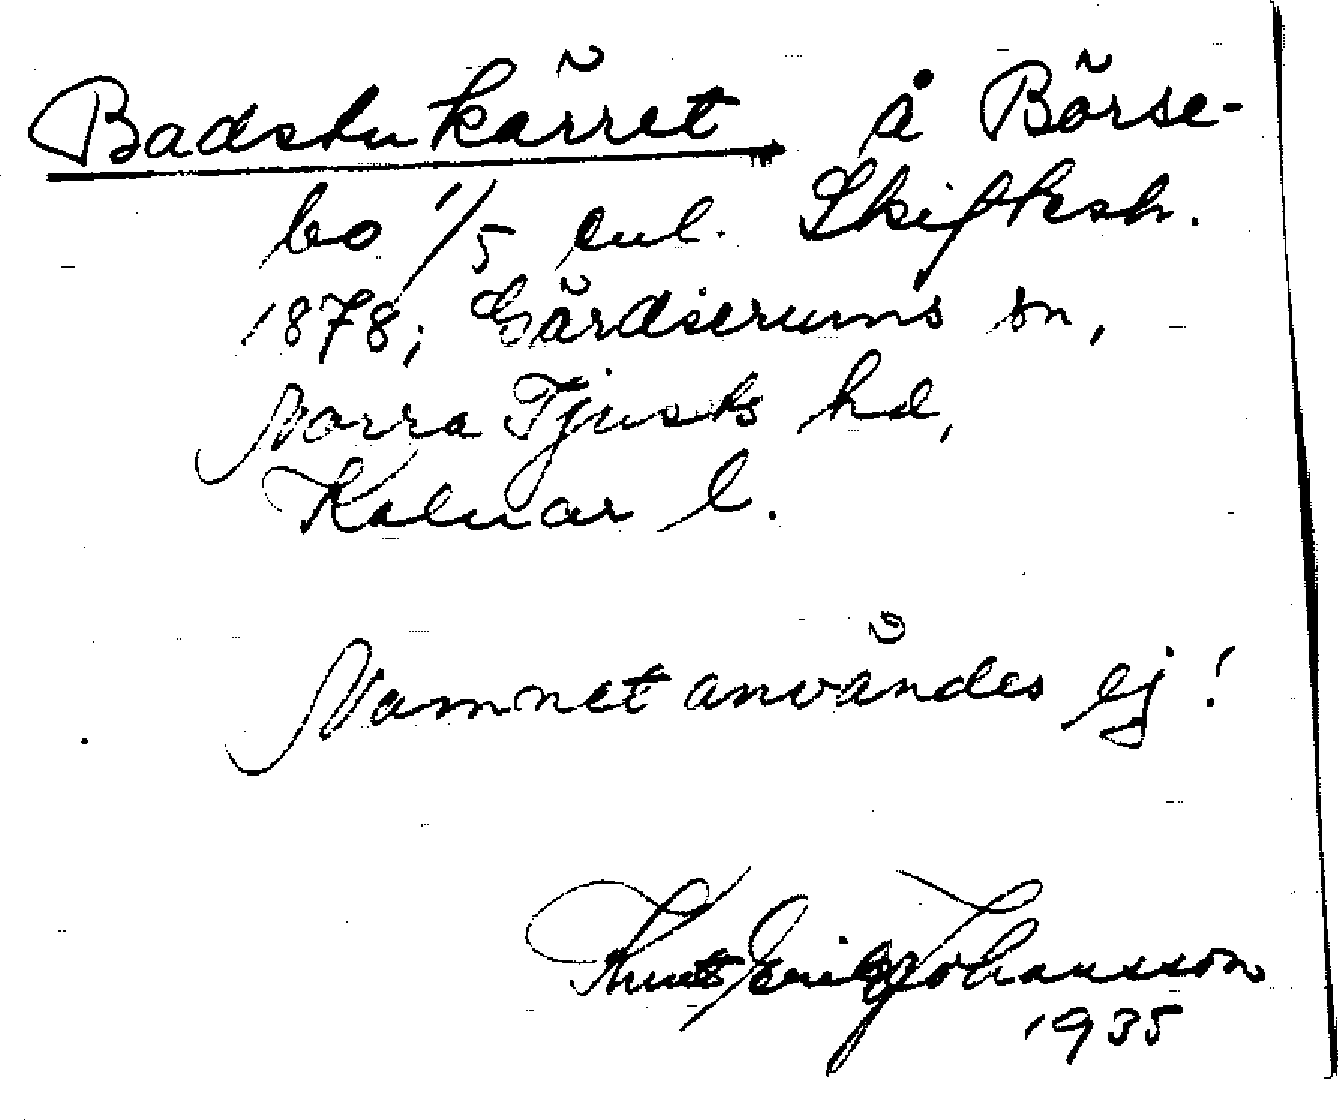 Badstukärret å Börse-
bo 1/5 enl. Skiftesh.
1878; Gärdserums sn,
Norra Tjusts hd,
Kalmar l.
Namnet användes ej!
Knut Erik Johansson
1935